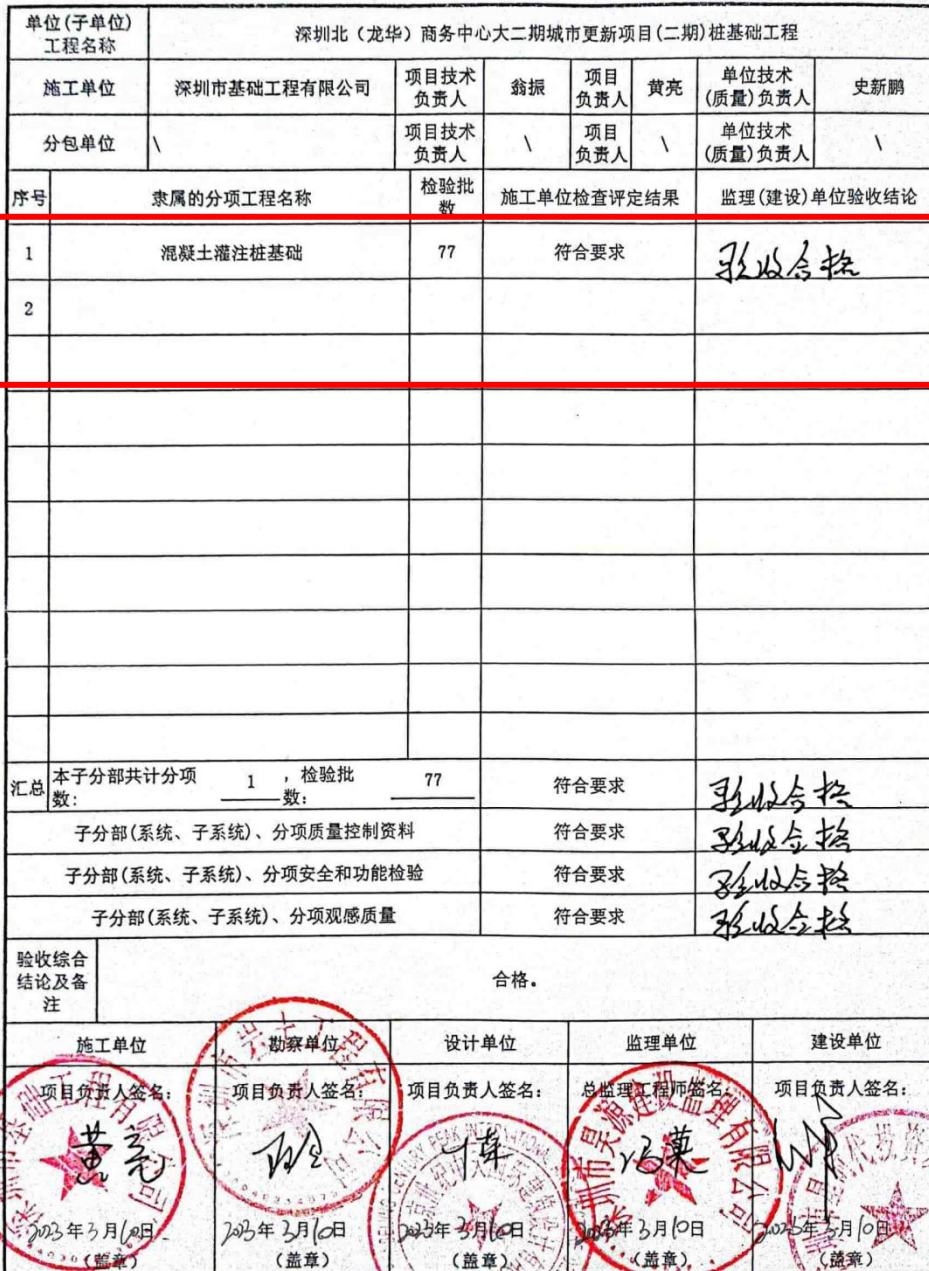 单位(子单位)
工程名称
深圳北（龙华）商务中心大二期城市更新项目(二期)桩基础工程
施工单位
深圳市基础工程有限公司
项目技术
负责人
翁振
项目
负责人
黄亮
单位技术
(质量)负责人
史新鹏
分包单位
\
项目技术
负责人
\
项目
负责人
\
单位技术
(质量)负责人
\
序号
隶属的分项工程名称
检验批
数
施工单位检查评定结果
监理(建设)单位验收结论
1
混凝土灌注桩基础
77
符合要求
验收合格
2
汇总
本子分部共计分项
数:
1
，检验批
数:
77
符合要求
验收合格
子分部(系统、子系统)、分项质量控制资料
符合要求
验收合格
子分部(系统、子系统)、分项安全和功能检验
符合要求
验收合格
子分部(系统、子系统)、分项观感质量
符合要求
验收合格
验收综合
结论及备
注
合格。
施工单位
勘察单位
设计单位
监理单位
建设单位
项目负责人签名:
项目负责人签名:
项目负责人签名:
总监理工程师签名:
项目负责人签名:
黄亮
2023年3月10日
2023年3月10日
2023年3月10日
2023年3月10日
2023年3月10日
(盖章)
(盖章)
(盖章)
(盖章)
(盖章)
深圳市昊源建设监理有限公司